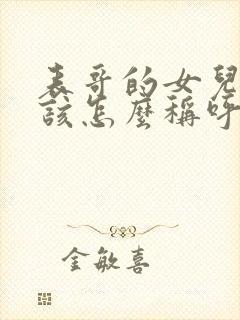 表哥的女兒
該怎麼稱呼
金敏喜